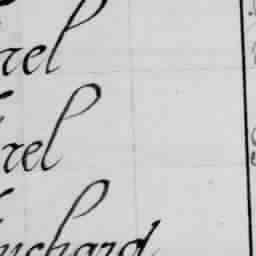 rel
rel
uchard